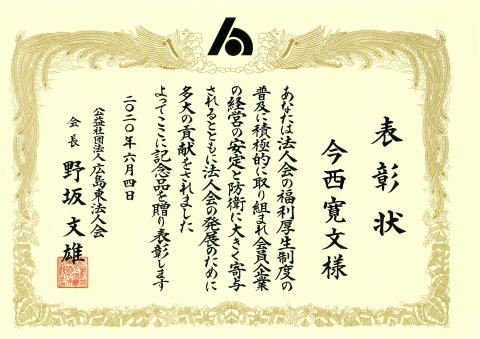 表彰状
今西寛文様
あなたは法人会の福利厚生制度の
普及に積極的に取り組まれ会員企業
の経営の安定と防衛に大きく寄与
されるとともに法人会の発展のために
多大の貢献をされました
よってここに記念品を贈り表彰します
二〇二〇年六月四日
公益社団法人広島東法人会
会長 野坂文雄